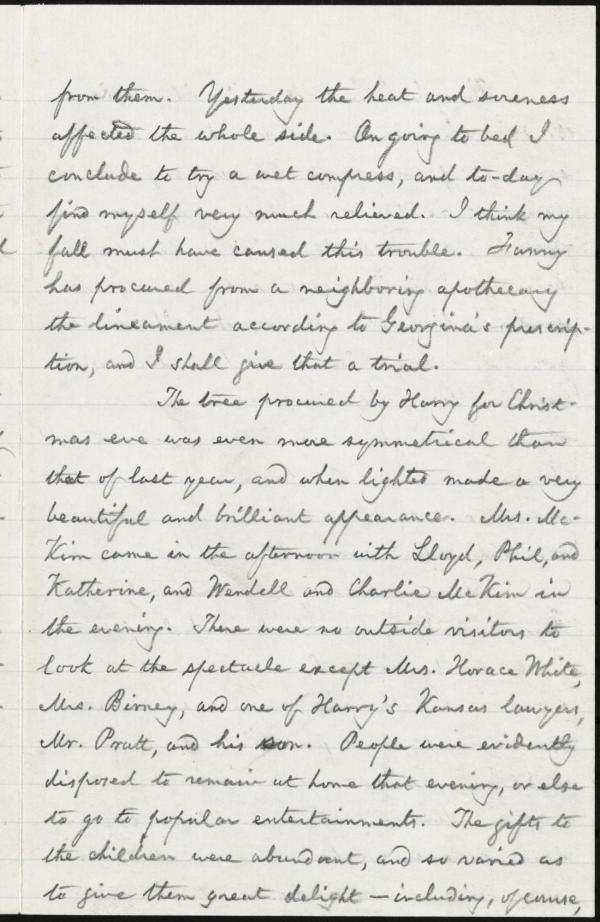 from them. Yesterday the heat and soreness
affected the whole side. On going to bed I
conclude to try a wet compress, and to-day
find myself very much relieved. I think my
fall must have caused this trouble. Fanny
has procured from a neighboring apothecary
the lineament according to Georgina's prescrip-
tion, and I shall give that a trial.
The tree procured by Harry for Christ-
mas eve was even more symmetrical than
that of last year, and when lighted made a very
beautiful and brilliant appearance. Mrs. Mc-
Kim came in the afternoon with Lloyd, Phil, and
Katherine, and Wendell and Charlie McKim in
the evening. There were no outside visitors to
look at the spectacle except Mrs. Horace White,
Mrs. Birney, and one of Harry's Kansas lawyers,
Mr. Pratt, and his son. People were evidently
disposed to remain at home that evening, or else
to go to popular entertainments. The gifts to
the children were abundant, and so varied as
to give them great delight — including, of course,